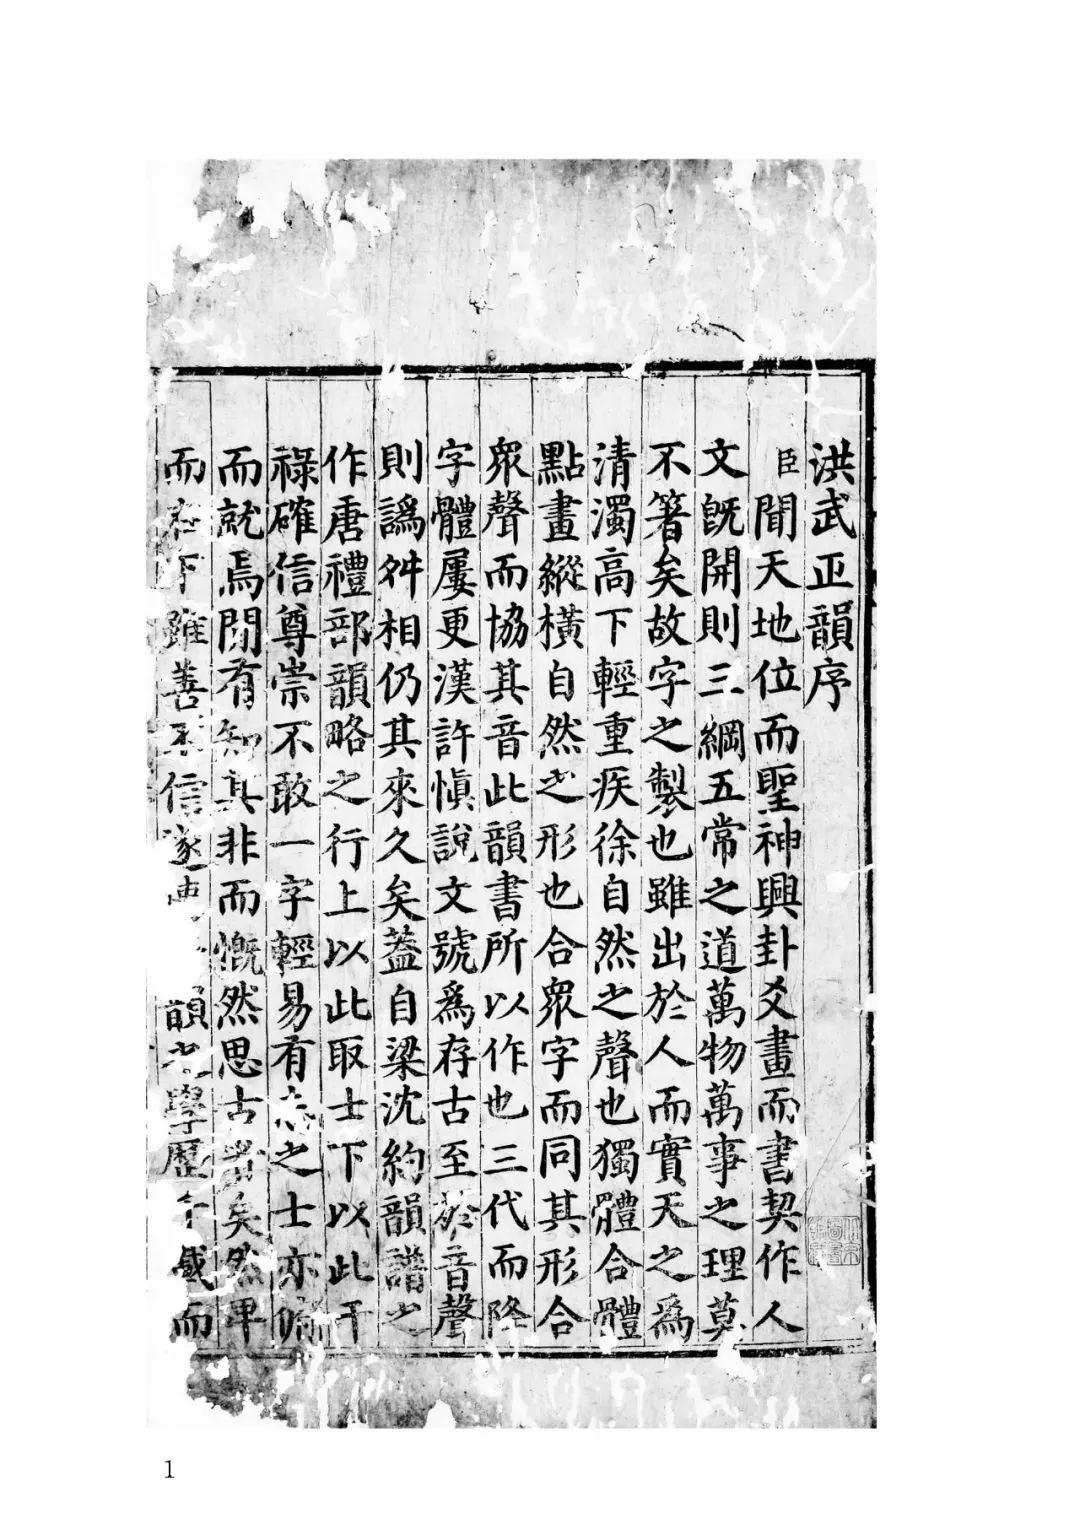 洪武正韻序
臣聞天地位而聖神興卦爻畫而書契作人
文旣開則三綱五常之道萬物萬事之理莫
不著矣故字之製也雖出於人而實天之爲
清濁高下輕重疾徐自然之聲也獨體合體
點畫縱橫自然之形也合衆字而同其形合
衆聲而協其音此韻書所以作也三代而降
字體屢更漢許愼說文號爲存古至於音聲
則譌舛相仍其來久矣蓋自梁沈約韻譜之
作唐禮部韻略之行上以此取士下以此干
祿確信尊崇不敢一字輕易有志之士亦俯
而就焉閒有知其非而慨然思古者矣然卑
而在下雖善不信遂使韻之學歷千載而
1